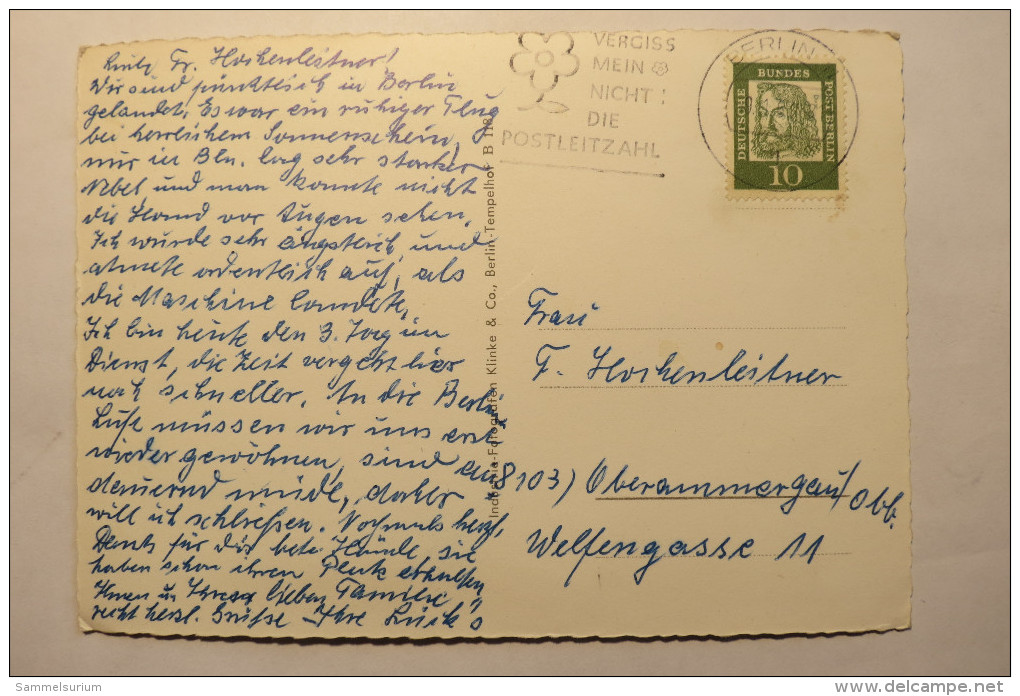 Fr. Hochenleitner!
Wir sind pünktlich in Berlin
gelandet. Es war ein ruhiger Flug
bei herrlichem Sonnenschein,
nur in Bln. lag sehr starker
Nebel und man konnte nicht
die Hand vor Augen sehen.
Ich wurde sehr ängstlich und
atmete ordentlich auf, als
die Maschine landete,
Ich bin heute den 3. Tag im
Dienst, die Zeit vergeht hier
noch schneller. An die Berli.
Luft müssen wir uns erst
wieder gewöhnen, sind
dauernd müde, daher
will ich schließen. Nochmals herzl.
Dank für die Hände, sie
haben schon ihren Platz erhalten
Ihnen u. Ihrer lieben Familie
recht herzl. Grüße Ihre
Klinke & Co., Berlin-Tempelhof B 118
VERGISS
MEIN
NICHT
DIE
POSTLEITZAHL
BERLIN
DEUTSCHE BUNDES POST BERLIN
10
Frau
F. Hochenleitner
8103) Oberammergau/Obb.
Welfengasse 11
Sammelsurium
www.delcampe.net